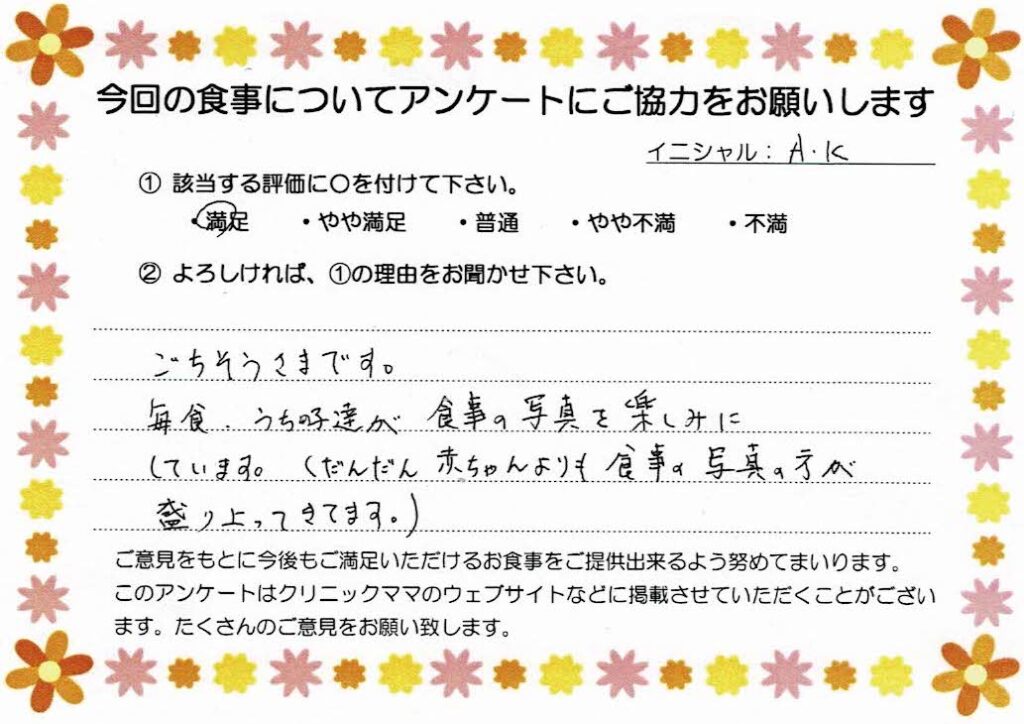 今回の食事についてアンケートにご協力をお願いします
イニシャル： A・K
① 該当する評価に〇を付けて下さい。
・満足 ・やや満足 ・普通 ・やや不満 ・不満
② よろしければ、①の理由をお聞かせ下さい。
ごちそうさまです。
毎食、うちの子達が 食事の写真を楽しみに
しています。(だんだん 赤ちゃんよりも 食事の写真の方が
盛り上ってきてます。)
ご意見をもとに今後もご満足いただけるお食事をご提供出来るよう努めてまいります。
このアンケートはクリニックママのウェブサイトなどに掲載させていただくことがござい
ます。たくさんのご意見をお願い致します。